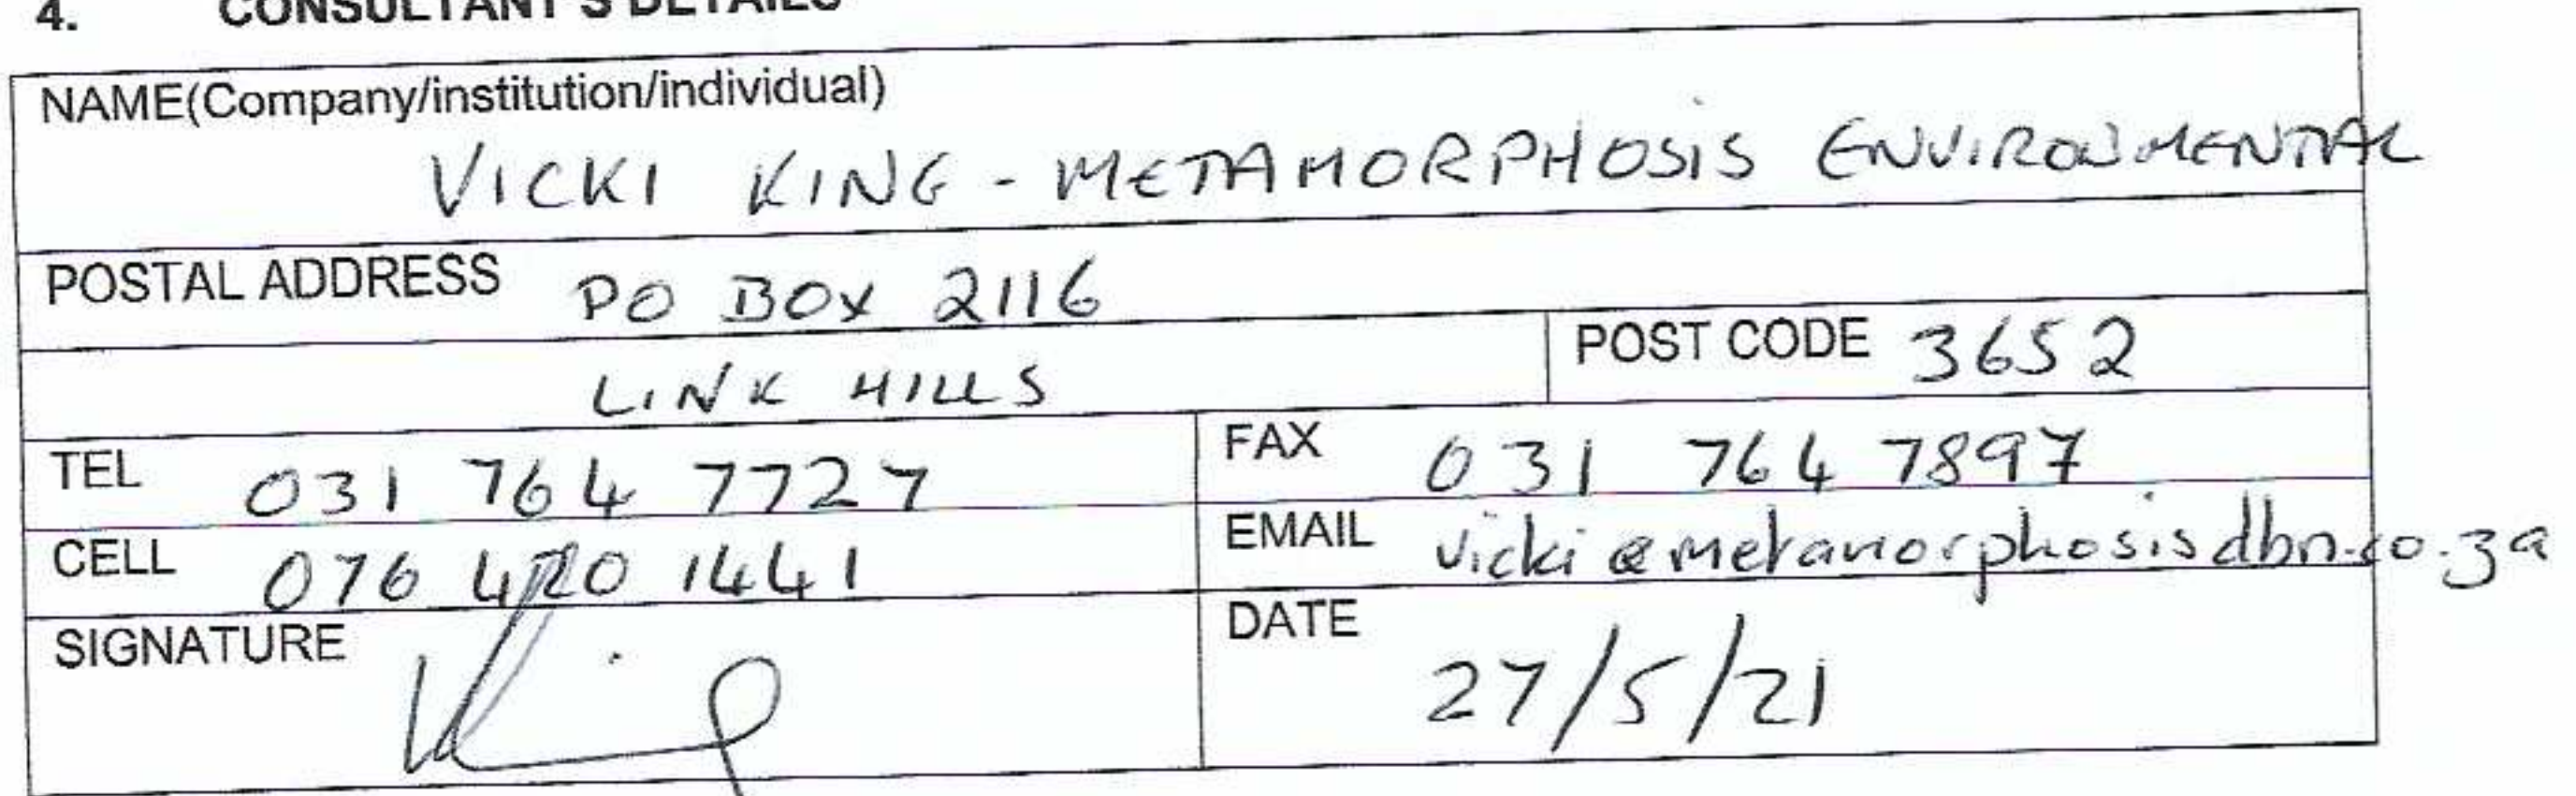 4. CONSULTANT'S DETAILS
NAME(Company/institution/individual)
VICKI KING - METAMORPHOSIS ENVIRONMENTAL
POSTAL ADDRESS PO BOX 2116
LINK HILLS POST CODE 3652
TEL 031 764 7727 FAX 031 764 7897
CELL 076 420 1441 EMAIL vicki@metamorphosisdbn.co.za
SIGNATURE DATE
27/5/21